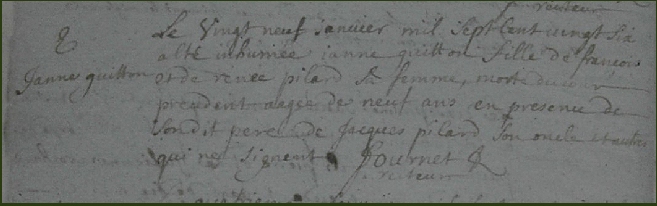 recteur
Le Vingt neuf Janvier mil Sept Cent vingt six
E
alté inhumée janne quitton fille de françois
Janne quitton
et de renée pilard Sa femme, morte du jour
precedent aagée de neuf ans en presence de
Sondit pere de Jacques pilard Son oncle et autres
qui ne Signent Journet
recteur